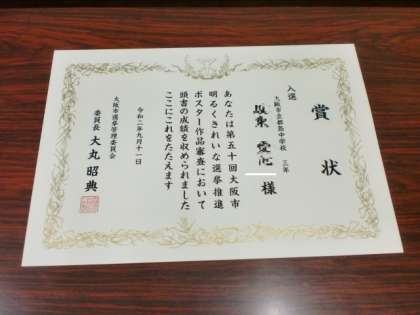 賞状
入選
大阪市立都島中学校 三年
様
あなたは第五十回大阪市
明るくきれいな選挙推進
ポスター作品審査において
頭書の成績を収められました
ここにこれをたたえます
令和二年九月十一日
大阪市選挙管理委員会
委員長 大丸昭典